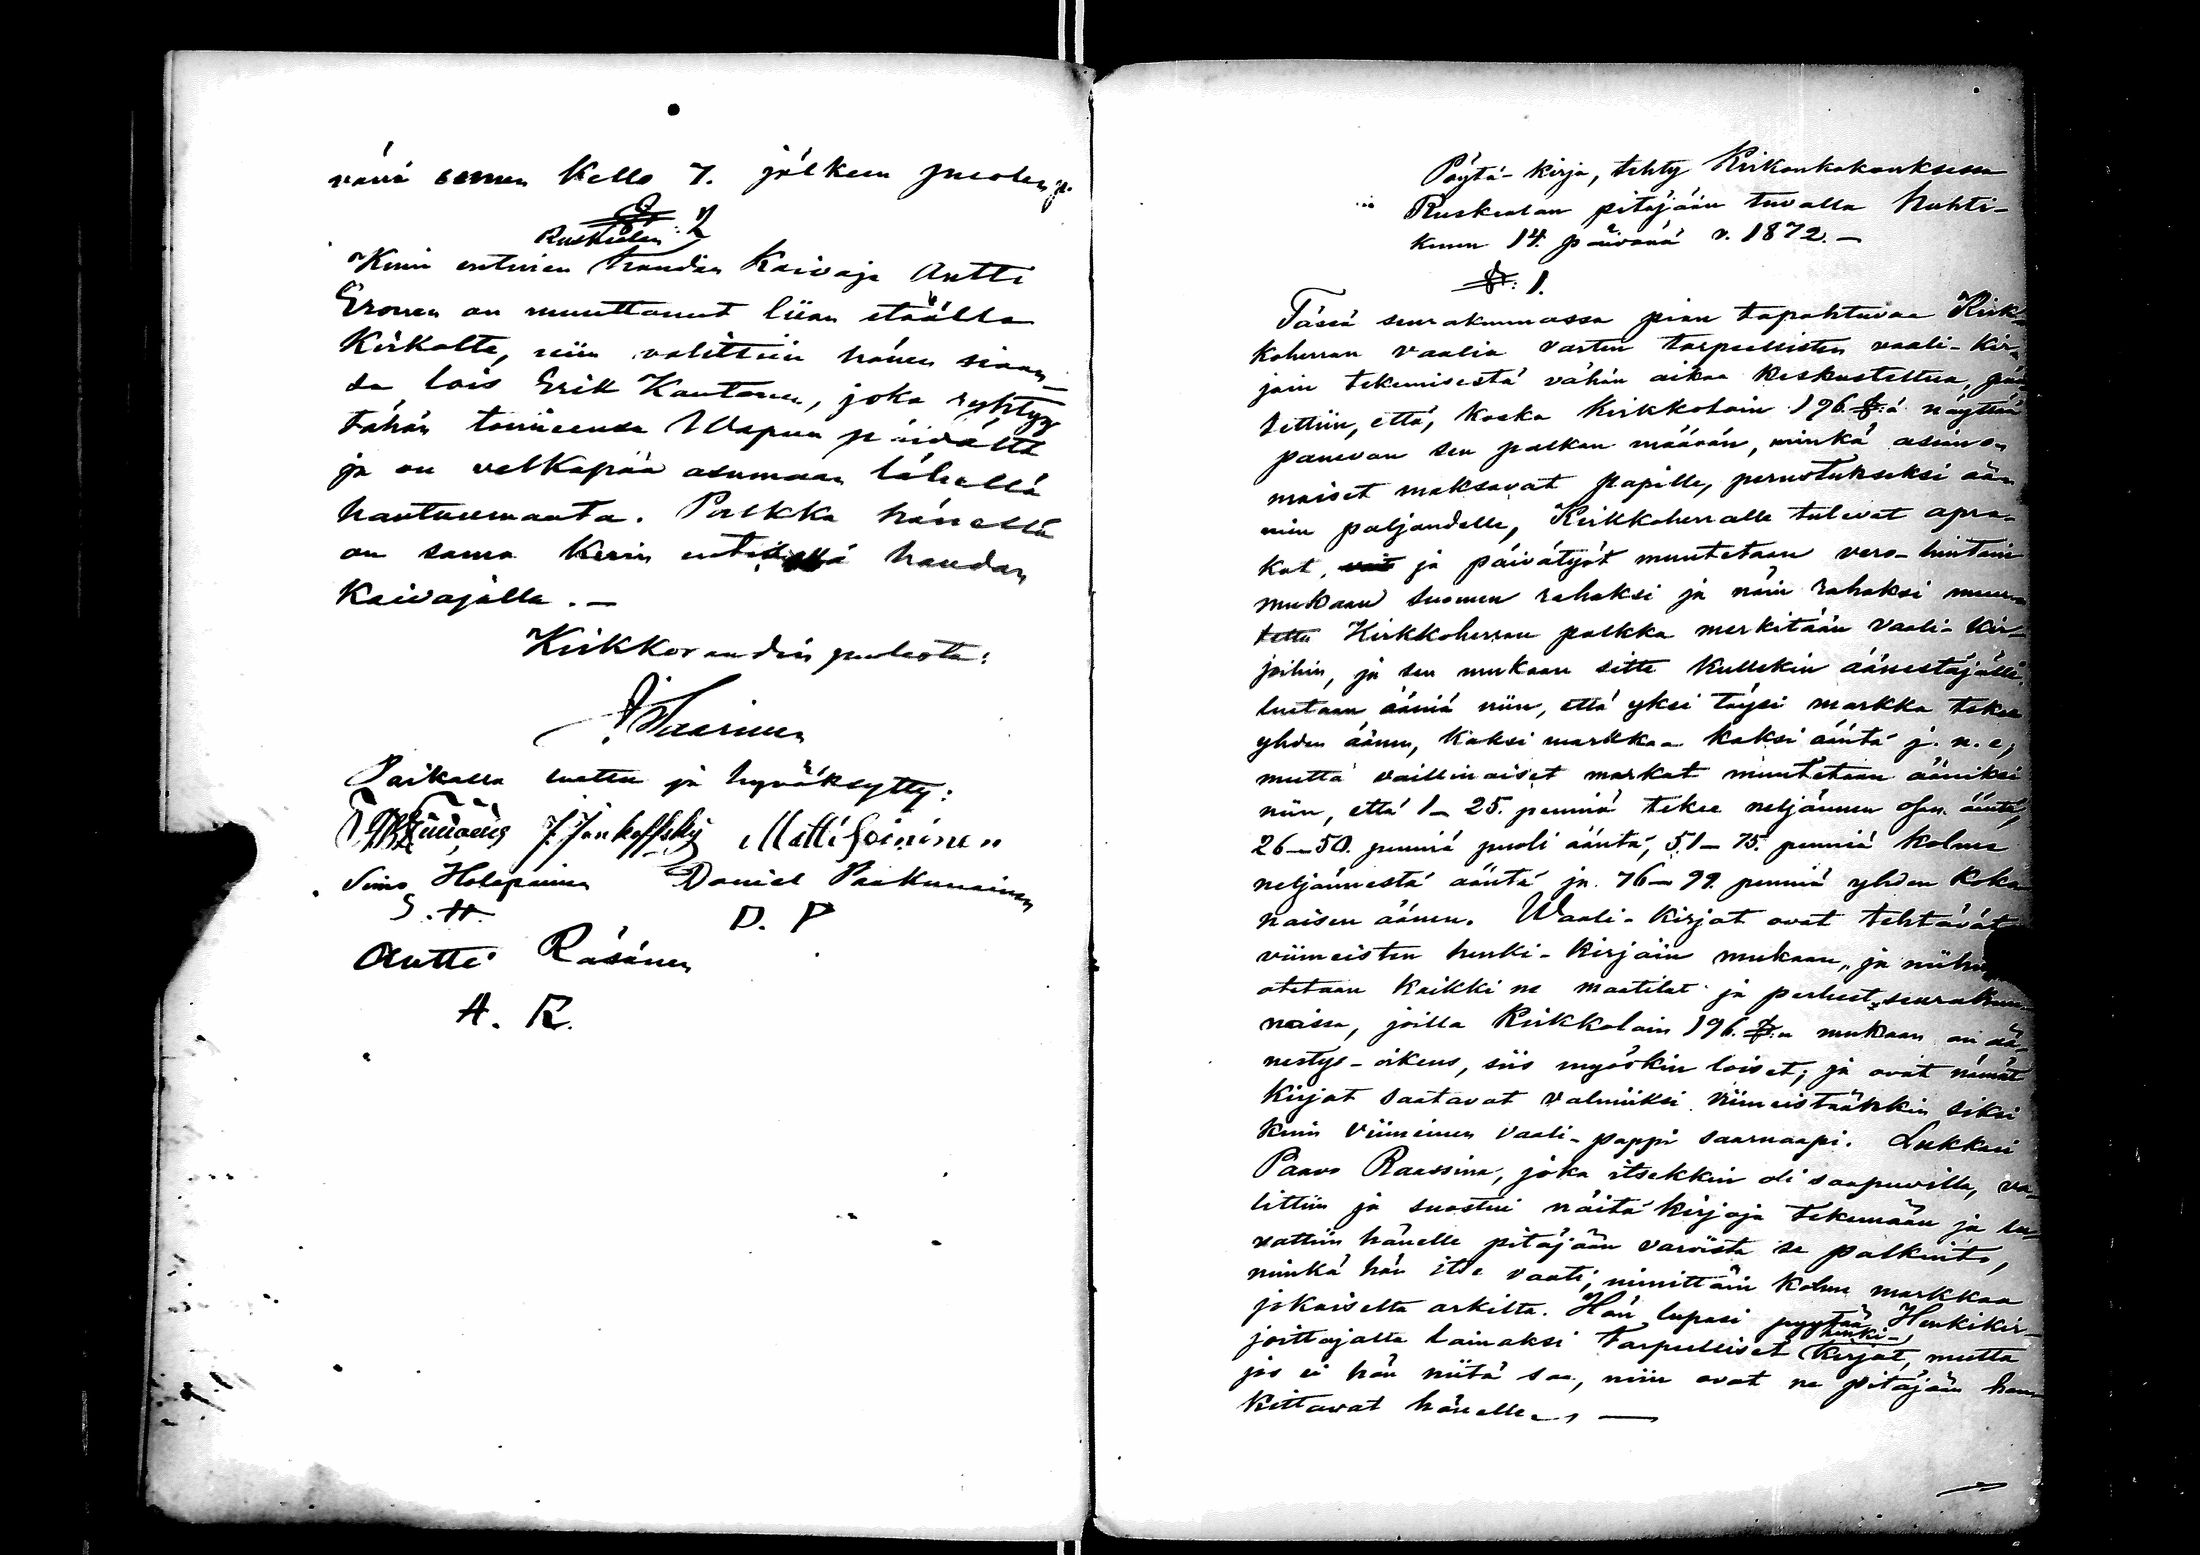 vävi ennen kello 7. jälkeen puolen p.
§: 2
Ruskealan
Kuin entinen haudan kaivaja Antti
Eronen on muuttanut liian etäälle
Kirkolta, niin valittiin hänen siaan-
sa lois Erik Kautonen, joka ryhtyy
tähän toimeensa Wapun päivältä
ja on velkapää asumaan lähellä
hautuumaata. Palkka hänellä
on sama kuin entisellä haudan
kaivajalla. —
Kirkkoraadin puolesta:
Paikalla luettu ja hyväksytty:
J. Jankoffskij Matti Soininen
Simo Holopainen Daniel Paakkunainen
S. H. D. P
Antti Räsänen
A. R.
Pöytä-kirja, tehty Kirkonkokouksessa
Ruskealan pitäjään tuvalla Huhti-
kuun 14. päivänä v. 1872. —
§: 1.
Tässä seurakunnassa pian tapahtuvaa Kirk-
koherran vaalia varten tarpeellisten vaali-kir-
jain tekemisestä vähän aikaa keskusteltua, pää
tettiin, että, koska Kirkkolain 196. §:ä näyttää
panevan sen palkan määrän, minkä asian o-
maiset maksavat papille, perustukseksi ään
nin paljoudelle, Kirkkoherralle tulevat apra-
kat, ja päivätyöt muutetaan vero-hintain
mukaan Suomen rahaksi ja näin rahaksi muu-
tettu Kirkkoherran palkka merkitään vaali-kir-
joihin, ja sen mukaan sitte kullekin äänestäjälle
luetaan ääniä niin, että yksi täysi markka tekee
yhden äänen, kaksi markkaa kaksi ääntä j. n. e,
mutta vaillinaiset markat muutetaan ääniksi
niin, että 1—25. penniä tekee neljännen osan ääntä,
26—50. penniä puoli ääntä, 51—75. penniä kolme
neljännestä ääntä ja 76—99. penniä yhden koko
naisen äänen. Waali-kirjat ovat tehtävät
viimeisten henki-kirjain mukaan, ja niihin
otetaan kaikki ne maatilat ja perheet seurakun-
nassa, joilla Kirkkolain 196. §:n mukaan on ää-
nestys-oikeus, siis myöskin loiset; ja ovat nämät
kirjat saatavat valmiiksi viimeistäänkin siksi
kuin viimeinen vaali-pappi saarnaapi. Lukkari
Paavo Raassina, joka itsekkin oli saapuvilla, va-
littiin ja suostui näitä kirjoja tekemään ja lu-
vattiin hänelle pitäjään varoista se palkinto,
minkä hän itse vaati, nimittäin kolme markkaa
jokaiselta arkilta. Hän lupasi pyytää Henkikir-
joittajalta lainaksi tarpeelliset henki-kirjat, mutta
jos ei hän niitä saa, niin ovat ne pitäjään han
kittavat hänelle. —